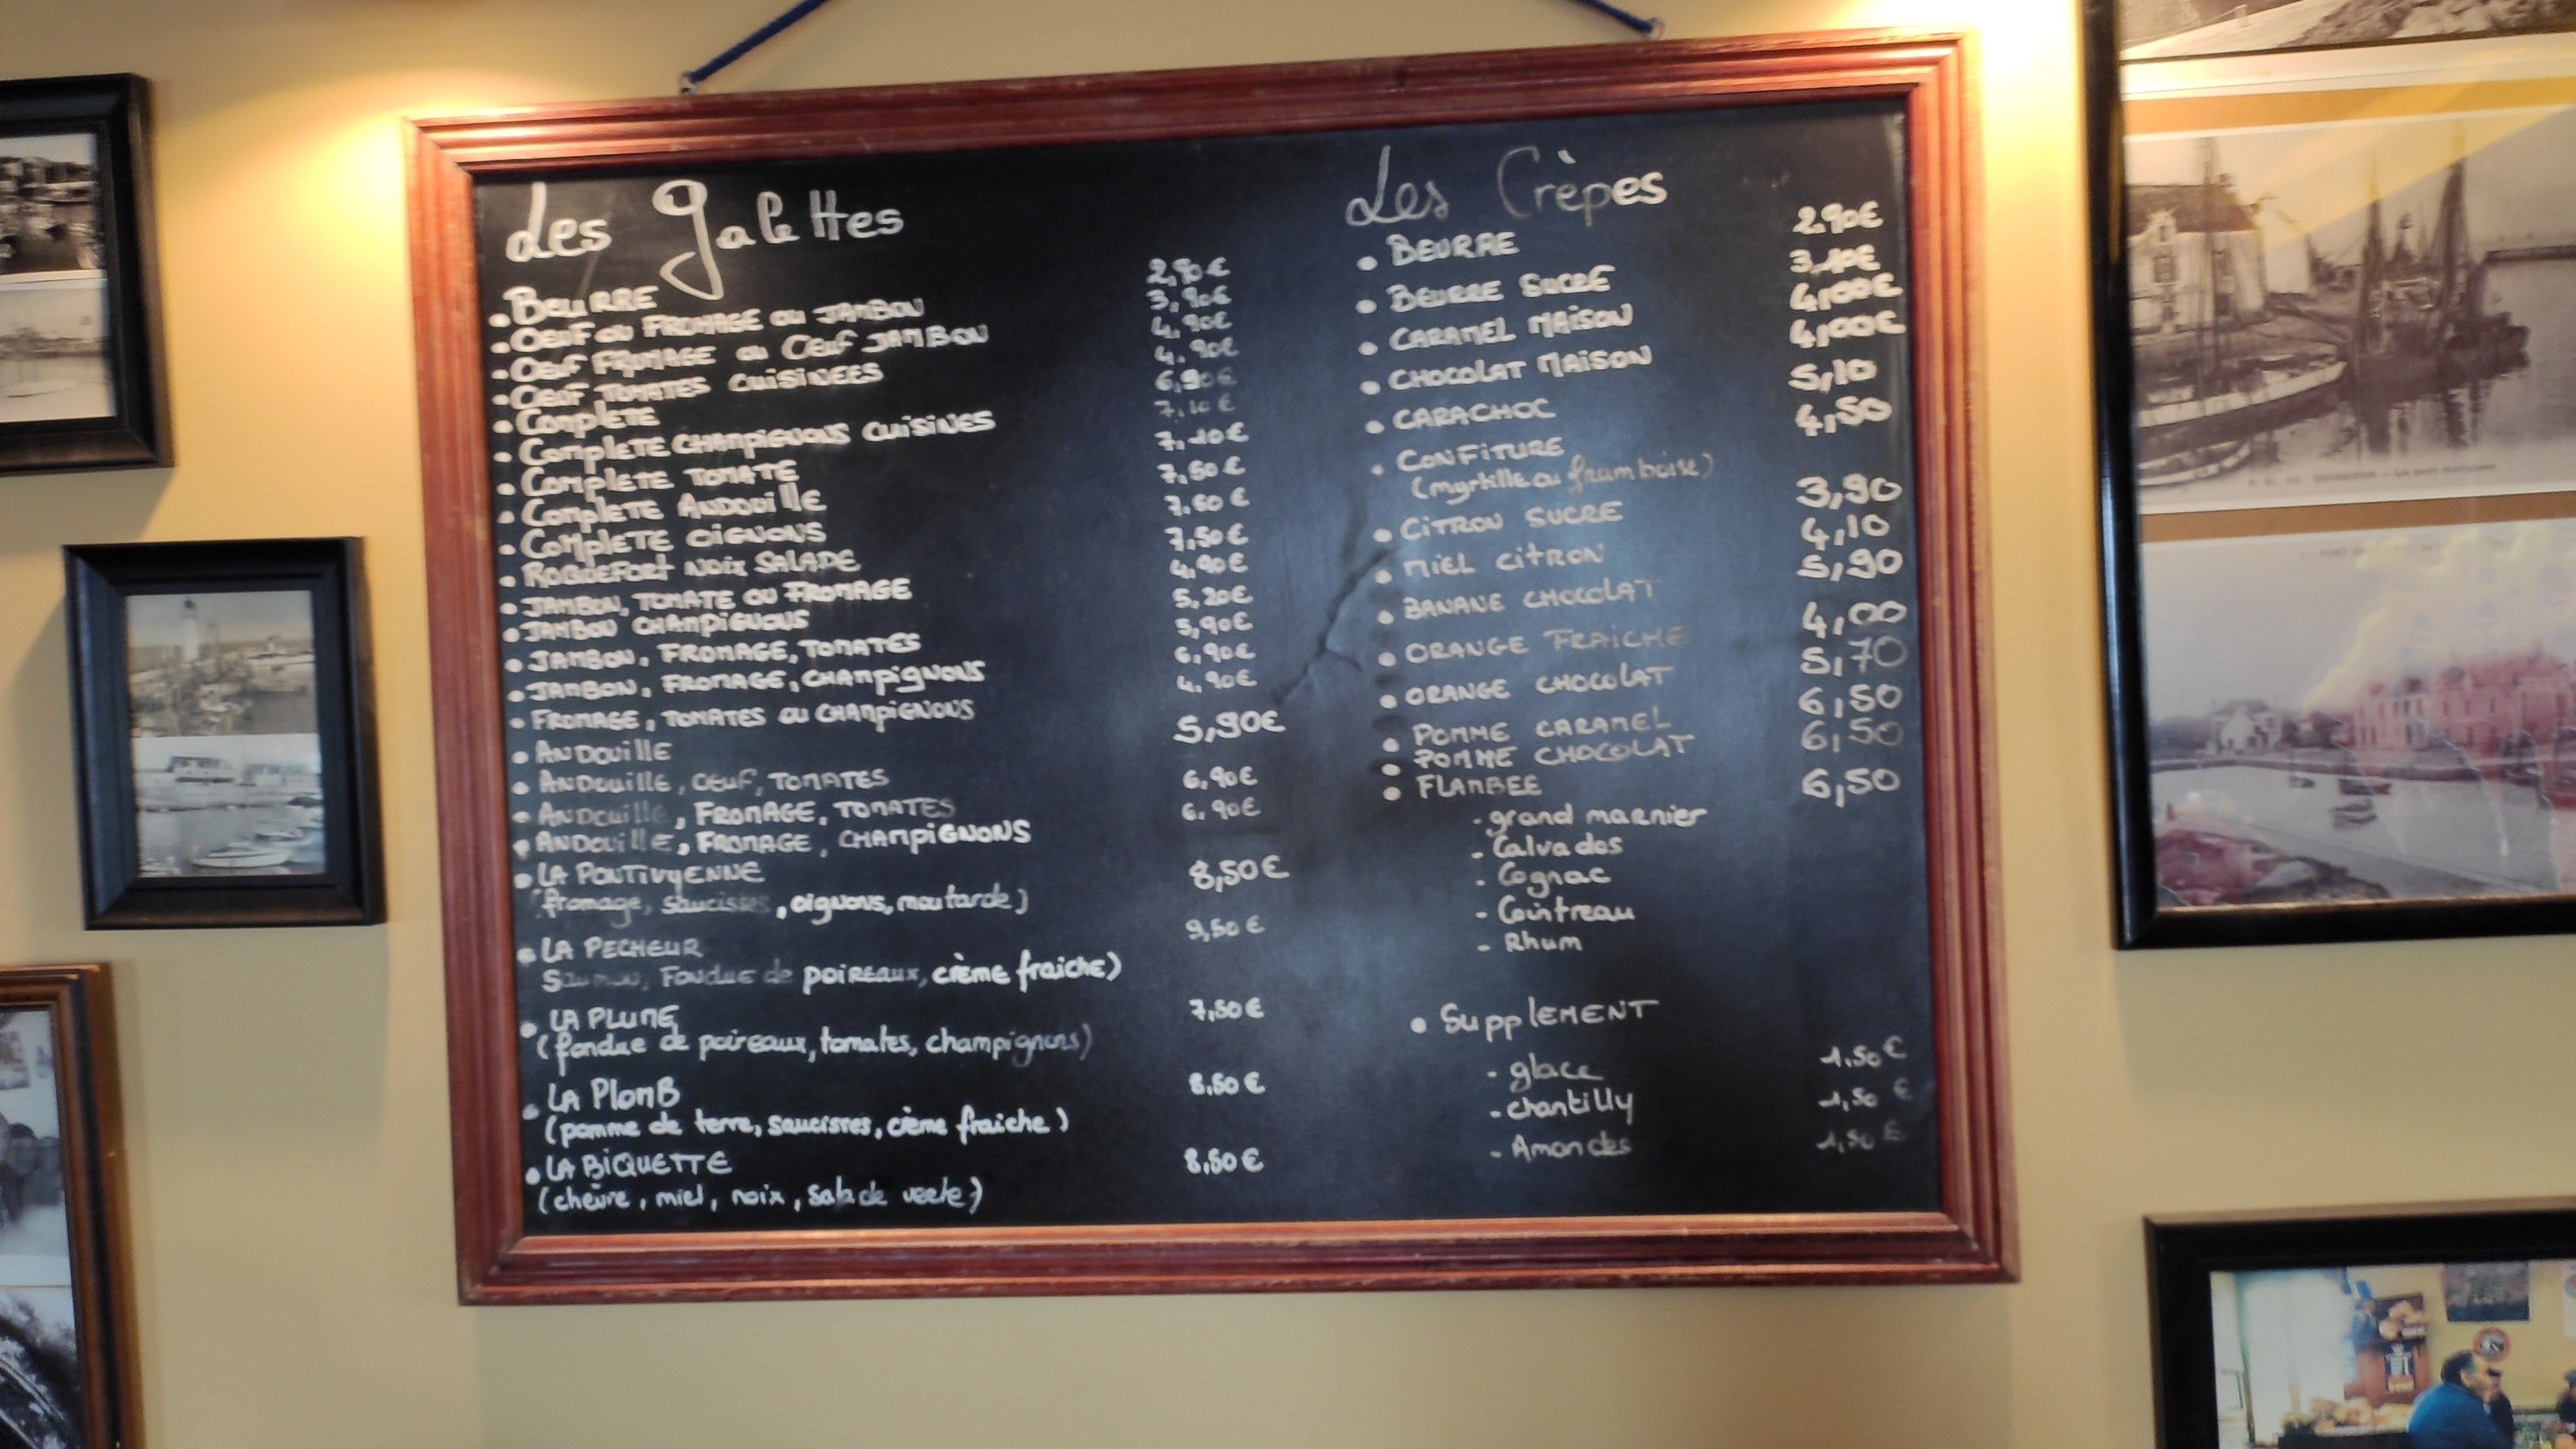 Les Galettes
• BEURRE 2,90€
• OEUF ou FROMAGE ou JAMBON 3,90€
• OEUF FROMAGE ou OEUF JAMBON 4,90€
• OEUF TOMATES CUISINEES 4,90€
• COMPLETE 6,90€
• COMPLETE CHAMPIGNONS CUISINES 7,10€
• COMPLETE TOMATE 7,10€
• COMPLETE ANDOUILLE 7,60€
• COMPLETE OIGNONS 7,60€
• ROQUEFORT NOIX SALADE 7,50€
• JAMBON, TOMATE OU FROMAGE 4,90€
• JAMBON CHAMPIGNONS 5,20€
• JAMBON, FROMAGE, TOMATES 5,90€
• JAMBON, FROMAGE, CHAMPIGNONS 6,90€
• FROMAGE, TOMATES OU CHAMPIGNONS 4,90€
• ANDOUILLE 5,90€
• ANDOUILLE, OEUF, TOMATES
• ANDOUILLE, FROMAGE, TOMATES 6,90€
• ANDOUILLE, FROMAGE, CHAMPIGNONS 6,90€
• LA PONTIVYENNE 8,50€
(fromage, saucisses, oignons, moutarde)
• LA PECHEUR 9,50€
Saumon, Fondue de poireaux, crème fraiche)
• LA PLUME 7,50€
(fondue de poireaux, tomates, champignons)
• LA PLOMB 8,50€
(pomme de terre, saucisses, crème fraiche)
• LA BIQUETTE 8,50€
(chèvre, miel, noix, salade verte)
Les Crèpes
• BEURRE 2.90€
• BEURRE SUCRE 3,10€
• CARAMEL MAISON 4,00€
• CHOCOLAT MAISON 4,00€
• CARACHOC 5,10
• CONFITURE 4,50
(myrtille ou framboise)
• CITRON SUCRE 3,90
• MIEL CITRON 4,10
• BANANE CHOCOLAT 5,90
• ORANGE FRAICHE 4,00
• ORANGE CHOCOLAT 5,70
• POMME CARAMEL 6,50
• POMME CHOCOLAT 6,50
• FLAMBEE 6,50
- grand marnier
- Calvados
- Cognac
- Cointreau
- Rhum
• SUPPLEMENT
- glace 1.50€
- chantilly 1,50 €
- Amandes 1,50 €